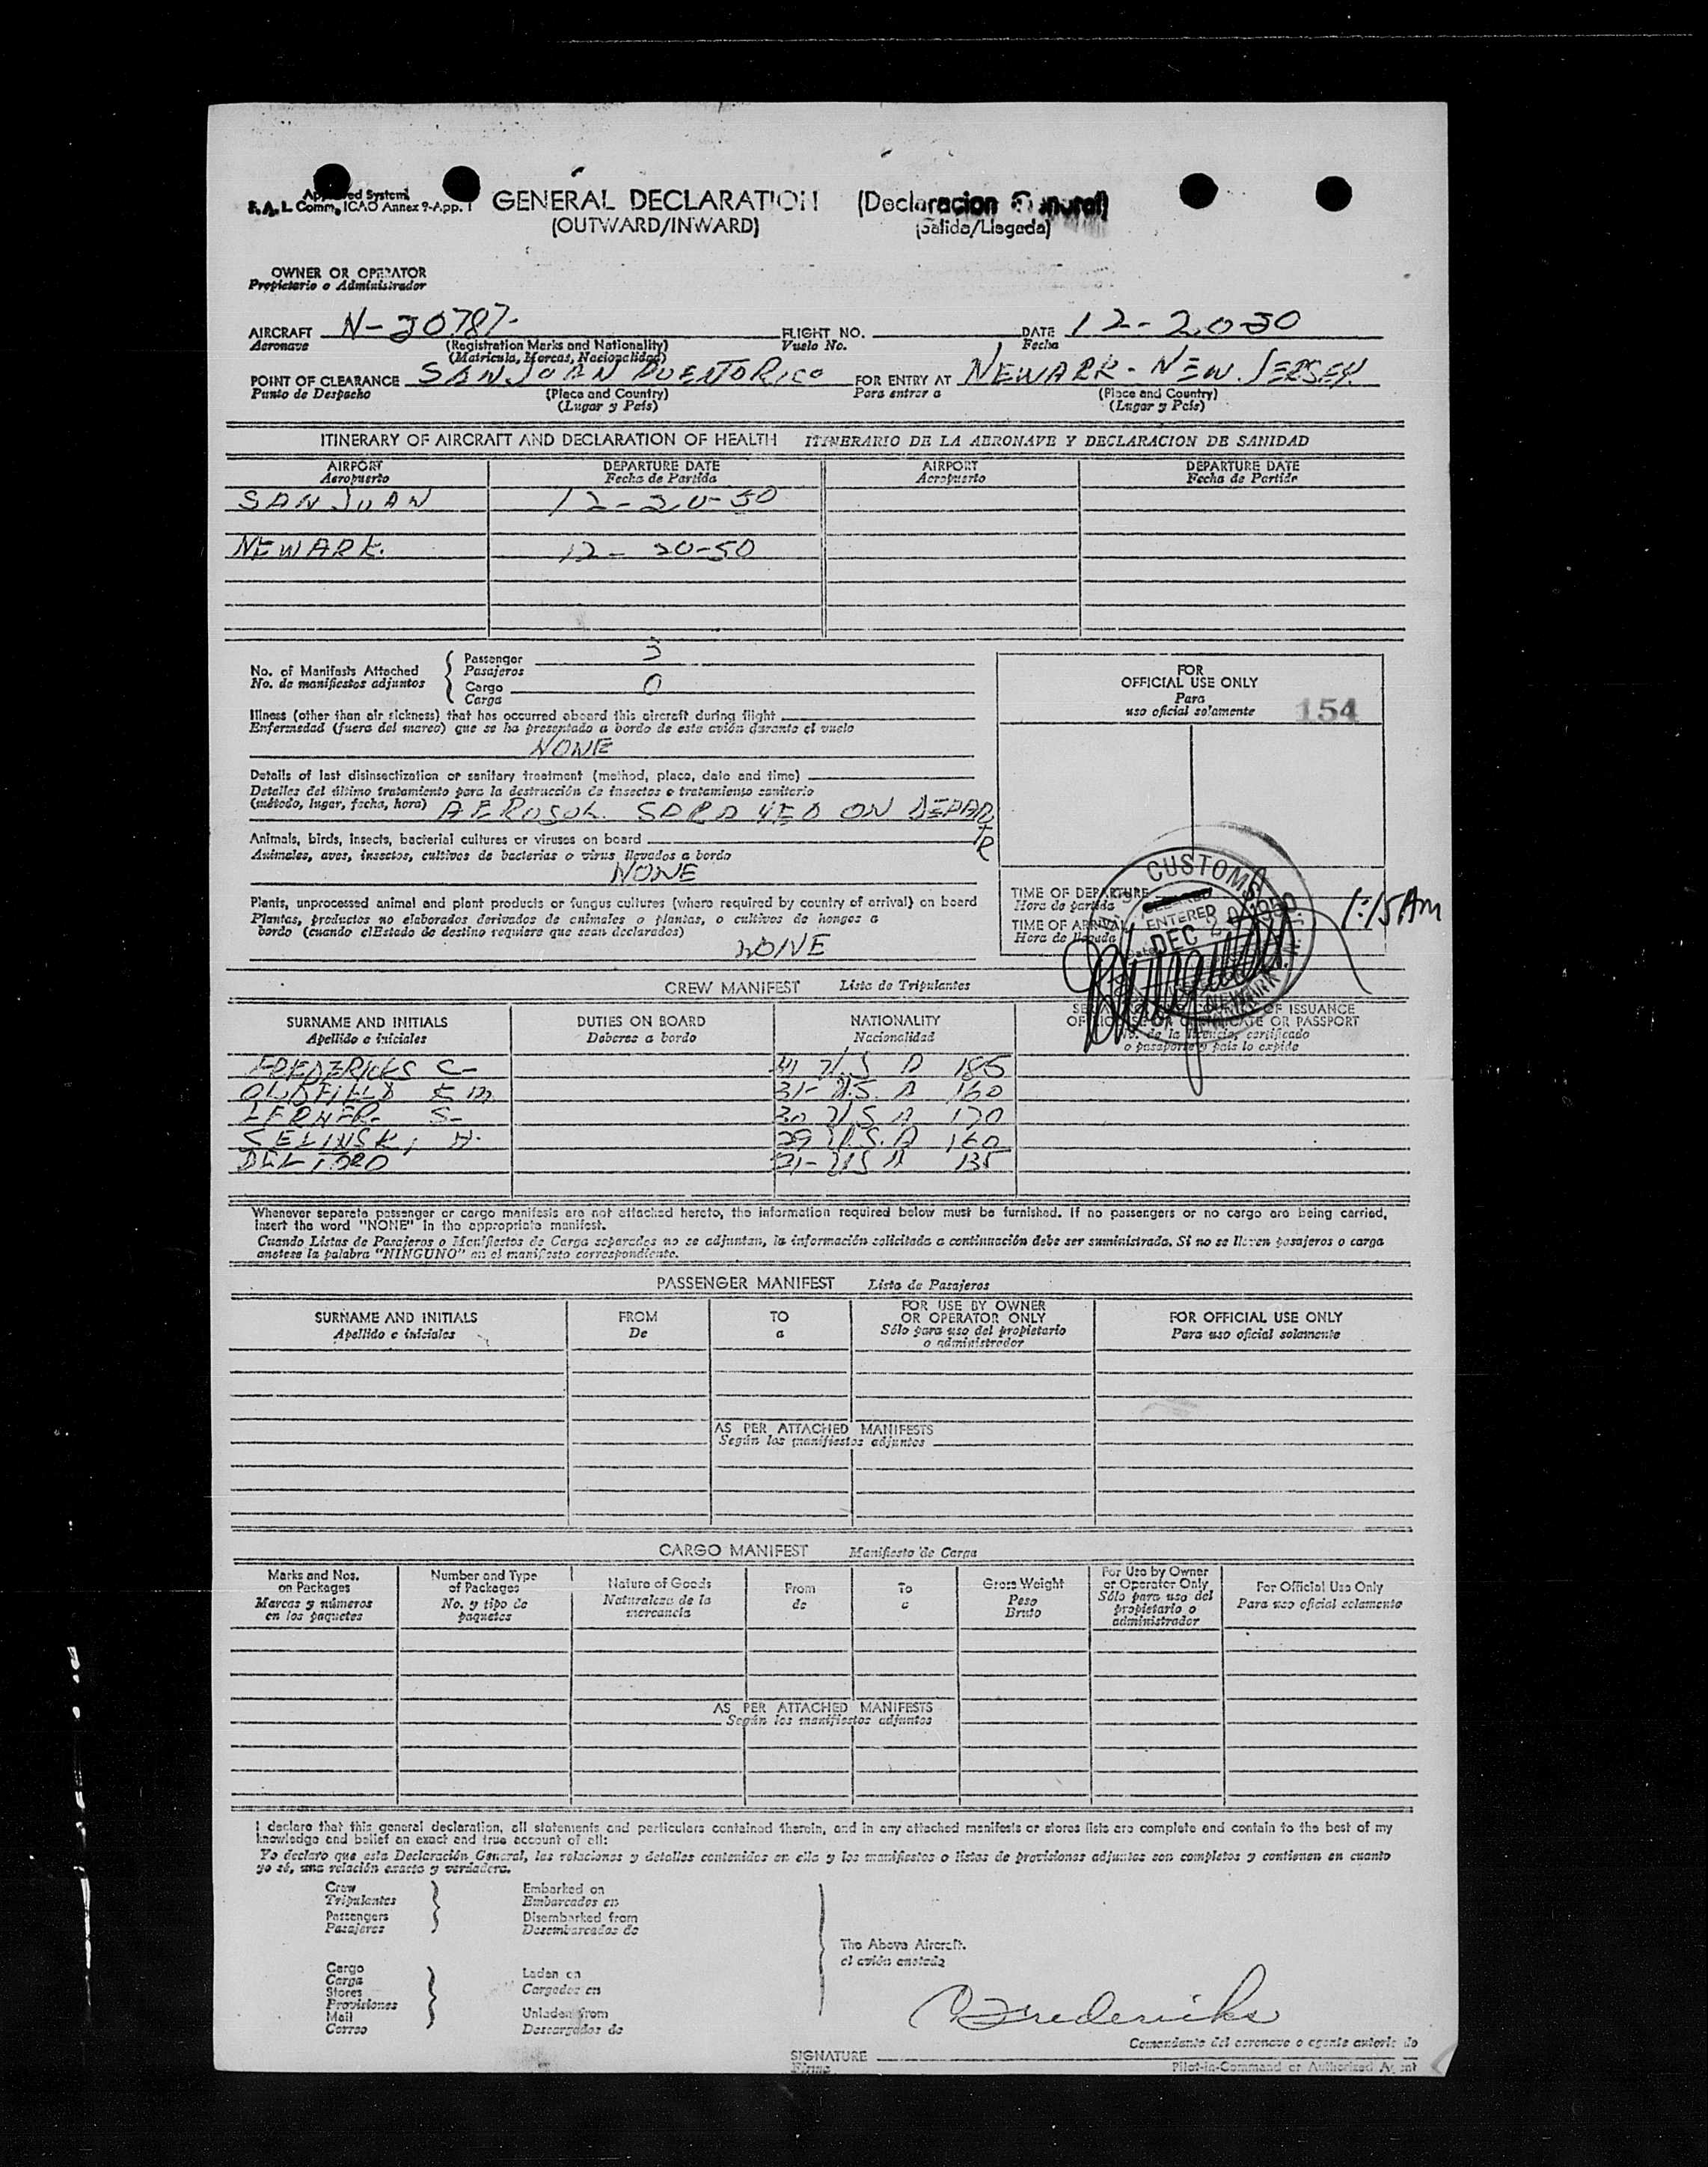 Approved System
F.A.L. Comm. ICAO Annex 9-App. 1
GENERAL DECLARATION (Declaracion General)
(OUTWARD/INWARD) (Salida/Llegada)
OWNER OR OPERATOR
Propietario o Administrador
AIRCRAFT N-30787- FLIGHT NO. DATE 12-20-50
Aeronave (Registration Marks and Nationality) Vuelo No. Fecha
(Matricula, Marcas, Nacionalidad)
POINT OF CLEARANCE SAN JUAN PUERTO RICO FOR ENTRY AT NEWARK - NEW JERSEY
Punto de Despacho (Place and Country) Para entrar a (Place and Country)
(Lugar y País) (Lugar y País)
ITINERARY OF AIRCRAFT AND DECLARATION OF HEALTH ITINERARIO DE LA AERONAVE Y DECLARACION DE SANIDAD
AIRPORT DEPARTURE DATE AIRPORT DEPARTURE DATE
Aeropuerto Fecha de Partida Aeropuerto Fecha de Partida
SAN JUAN 12-20-50
NEWARK. 12-20-50
No. of Manifests Attached Passenger 3
No. de manifiestos adjuntos Pasajeros
Cargo 0
Carga
FOR
OFFICIAL USE ONLY
Para
uso oficial solamente 154
Illness (other than air sickness) that has occurred aboard this aircraft during flight
Enfermedad (fuera del mareo) que se ha presentado a bordo de este avión durante el vuelo
NONE
Details of last disinsectization or sanitary treatment (method, place, date and time)
Detalles del último tratamiento para la destrucción de insectos o tratamiento sanitario
(método, lugar, fecha, hora) AEROSOL SPRAYED ON DEPARTR
Animals, birds, insects, bacterial cultures or viruses on board
Animales, aves, insectos, cultivos de bacterias o virus llevados a bordo
NONE
Plants, unprocessed animal and plant products or fungus cultures (where required by country of arrival) on board
Plantas, productos no elaborados derivados de animales o plantas, o cultivos de hongos a
bordo (cuando elEstado de destino requiere que sean declarados)
NONE
TIME OF DEPARTURE
Hora de partida
TIME OF ARRIVAL
Hora de llegada
1:15 AM
CUSTOMS
ENTERED
DEC 20 1950
NEWARK
CREW MANIFEST Lista de Tripulantes
SURNAME AND INITIALS DUTIES ON BOARD NATIONALITY OF ISSUANCE
Apellido e iniciales Deberes a bordo Nacionalidad OR PASSPORT
No. de la licencia, certificado
o pasaporte y país lo expide
FREDERICKS C- U.S A 185
OLDFIELD E M 31- U.S. A 160
LERNER S- 30 U.S A 170
SELINSKI, H. 29 U.S. A 160
DEL TORO 31- U.S A 135
Whenever separate passenger or cargo manifests are not attached hereto, the information required below must be furnished. If no passengers or no cargo are being carried,
insert the word "NONE" in the appropriate manifest.
Cuando Listas de Pasajeros o Manifiestos de Carga separados no se adjuntan, la información solicitada a continuación debe ser suministrada. Si no se lleven pasajeros o carga
anotese la palabra "NINGUNO" en el manifiesto correspondiente.
PASSENGER MANIFEST Lista de Pasajeros
SURNAME AND INITIALS FROM TO FOR USE BY OWNER OR OPERATOR ONLY FOR OFFICIAL USE ONLY
Apellido e iniciales De a Sólo para uso del propietario o administrador Para uso oficial solamente
AS PER ATTACHED MANIFESTS
Según los manifiestos adjuntos
CARGO MANIFEST Manifiesto de Carga
Marks and Nos. on Packages Number and Type of Packages Nature of Goods From To Gross Weight For Use by Owner or Operator Only For Official Use Only
Marcas y números en los paquetes No. y tipo de paquetes Naturaleza de la mercancia de a Peso Bruto Sólo para uso del propietario o administrador Para uso oficial solamente
AS PER ATTACHED MANIFESTS
Según los manifiestos adjuntos
I declare that this general declaration, all statements and particulars contained therein, and in any attached manifests or stores lists are complete and contain to the best of my
knowledge and belief an exact and true account of all:
Yo declaro que esta Declaración General, las relaciones y detalles contenidos en ella y los manifiestos o listas de provisiones adjuntos son completos y contienen en cuanto
yo sé, una relación exacta y verdadera.
Crew Embarked on
Tripulantes Embarcados en
Passengers Disembarked from
Pasajeros Desembarcados de
The Above Aircraft.
el avión anotada
Cargo Laden on
Carga Cargados en
Stores
Provisiones
Mail Unladen from
Correo Descargados de
C Fredericks
Comandante del aeronave o agente autorizado
SIGNATURE
Firma Pilot-in-Command or Authorized Agent